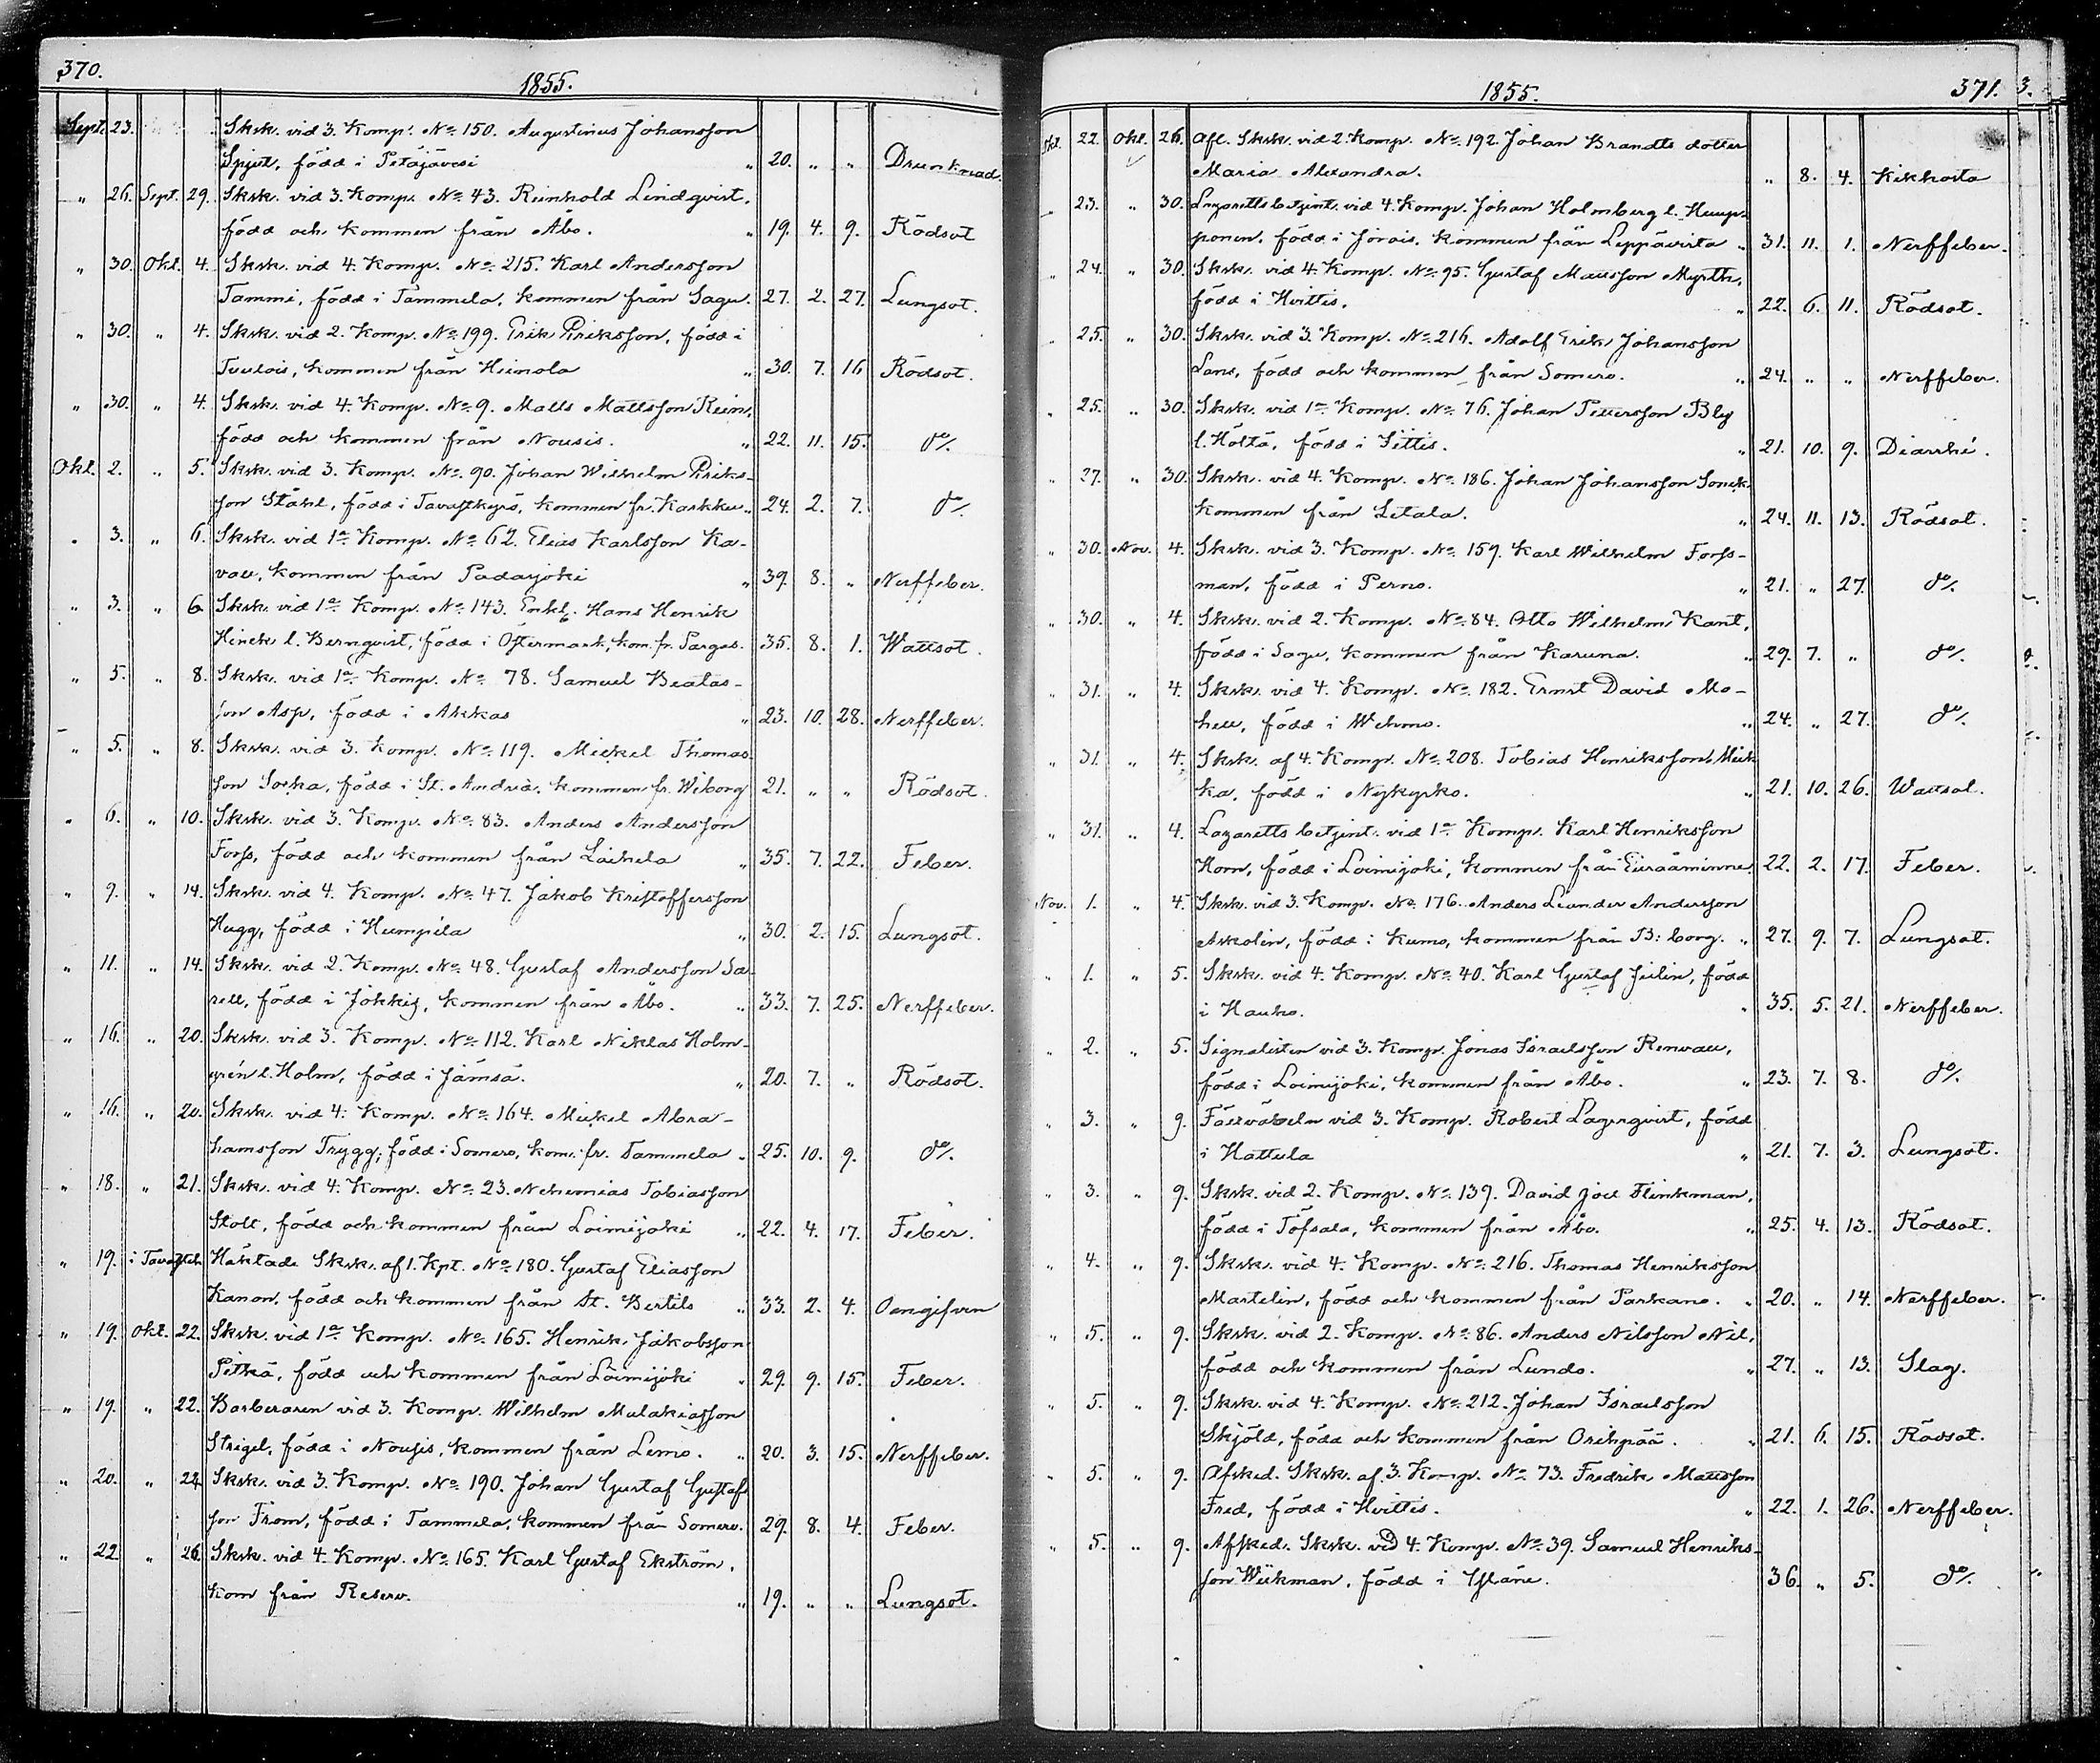 370.
1855.
Sept. 23. Sksk. vid 3. Komp. No. 150. Augustinus Johansson
Spjut, född i Petäjävesi " 20. " " Drunknad.
" 26. Sept. 29. Sksk. vid 3. Komp. No. 43. Reinhold Lindqvist,
född och kommen från Åbo. " 19. 4. 9. Rödsot
" 30. Okt. 4. Sksk. vid 4. Komp. No. 215. Karl Andersson
Tammi, född i Tammela, kommen från Sagu. 27. 2. 27. Lungsot.
" 30. " 4. Sksk. vid 2. Komp. No. 199. Erik Eriksson, född i
Tuulois, kommen från Heinola " 30. 7. 16 Rödsot.
" 30. " 4. Sksk. vid 4. Komp. No. 9. Matts Mattsson Rein,
född och kommen från Nousis. " 22. 11. 15. do/.
Okt. 2. " 5. Sksk. vid 3. Komp. No. 90. Johan Wilhelm Eriks-
son Ståhl, född i Tavastkyrö, kommen fr. Karkku. " 24. 2. 7. do/.
" 3. " 6. Sksk. vid 1a Komp. No. 62. Elias Karlsson Ka-
vall, kommen från Padasjoki " 39. 8. " Nerffeber.
" 3. " 6 Sksk. vid 1a Komp. No. 143. Enkl. Hans Henrik
Hinck l. Bernqvist, född i Östermark, kom. fr. Pargas. 35. 8. 1. Wattsot.
" 5. " 8. Sksk. vid 1a Komp. No. 78. Samuel Beatas-
son Asp, född i Akkas " 23. 10. 28. Nerffeber.
" 5. " 8. Sksk. vid 3. Komp. No. 119. Mickel Thomas-
son Sorka, född i St. Andreæ, kommen fr. Wiborg 21. " " Rödsot.
" 6. " 10. Sksk. vid 3. Komp. No. 83. Anders Andersson
Forss, född och kommen från Laihela " 35. 7. 22. Feber.
" 9. " 14. Sksk. vid 4. Komp. No. 47. Jakob Kristoffersson
Hugg, född i Humpila " 30. 2. 15. Lungsot.
" 11. " 14. Sksk. vid 2. Komp. No. 48. Gustaf Andersson Sa-
rell, född i Jokkis, kommen från Åbo. " 33. 7. 25. Nerffeber.
" 16. " 20. Sksk. vid 3. Komp. No. 112. Karl Niklas Holm-
grén l. Holm, född i Jämsä. " 20. 7. " Rödsot.
" 16. " 20. Sksk. vid 4. Komp. No. 164. Mickel Abra-
hamsson Trygg, född i Somero, kom. fr. Tammela " 25. 10. 9. do/.
" 18. " 21. Sksk. vid 4. Komp. No. 23. Nehemias Tobiasson
Stolt, född och kommen från Loimijoki " 22. 4. 17. Feber.
" 19. i Tavasteh. Häktade Sksk. af 1. Kpt. No. 180. Gustaf Eliasson
Kanon, född och kommen från St. Bertils " 33. 2. 4. Oangifven
" 19. Okt. 22. Sksk. vid 1a Komp. No. 165. Henrik Jakobsson
Pitkä, född och kommen från Loimijoki " 29. 9. 15. Feber.
" 19. " 22. Barberaren vid 3. Komp. Wilhelm Malakiasson
Strigel, född i Nousis, kommen från Lemo. " 20. 3. 15. Nerffeber.
" 20. " 24 Sksk. vid 3. Komp. No. 190. Johan Gustaf Gustafs-
son From, född i Tammela, kommen från Somero. 29. 8. 4. Feber.
" 22. " 26. Sksk. vid 4. Komp. No. 165. Karl Gustaf Ekström,
kom från Reserv. " 19. " " Lungsot.
1855.
371.
Okt. 22. Okt. 26. Afl. Sksk. vid 2. Komp. No. 192. Johan Brandts dotter
Maria Alexandra. " 8. 4. Kikhosta
" 23. " 30. Lazaretts betjent. vid 4. Komp. Johan Holmberg l. Hemp-
ponen, född i Jorois, kommen från Leppävirta " 31. 11. 1. Nerffeber.
" 24. " 30. Sksk. vid 4. Komp. No. 95. Gustaf Mattsson Myrth,
född i Hvittis. " 22. 6. 11. Rödsot.
" 25. " 30. Sksk. vid 3. Komp. No. 216. Adolf Erik Johansson
Lans, född och kommen från Somero. " 24. " " Nerffeber.
" 25. " 30. Sksk. vid 1a Komp. No. 76. Johan Pettersson Bly
l. Höltä, född i Sittis. " 21. 10. 9. Diarrhé.
" 27. " 30. Sksk. vid 4. Komp. No. 186. Johan Johansson Sonck
kommen från Letala. " 24. 11. 13. Rödsot.
" 30. Nov. 4. Sksk. vid 3. Komp. No. 159. Karl Wilhelm Forss-
man, född i Perno. " 21. " 27. do/.
" 30. " 4. Sksk. vid 2. Komp. No. 84. Otto Wilhelm Kant,
född i Sagu, kommen från Karuna. " 29. 7. " do/.
" 31. " 4. Sksk. vid 4. Komp. No. 182. Ernst David Mo-
hell, född i Wehmo. " 24. " 27. do/.
" 31. " 4. Sksk. af 4. Komp. No. 208. Tobias Henriksson
ka, född i Nykyrko. " 21. 10. 26. Wattsot.
" 31. " 4. Lazaretts betjent. vid 1a Komp. Karl Henriksson
Horn, född i Loimijoki, kommen från Euraåminne. 22. 2. 17. Feber.
Nov. 1. " 4. Sksk. vid 3. Komp. No. 176. Anders Leander Andersson
Askolin, född i Kumo, kommen från B:borg. " 27. 9. 7. Lungsot.
" 1. " 5. Sksk. vid 4. Komp. No. 40. Karl Gustaf Julin, född
i Hauho. " 35. 5. 21. Nerffeber.
" 2. " 5. Signalisten vid 3. Komp. Jonas Israelsson Renvall,
född i Loimijoki, kommen från Åbo. " 23. 7. 8. do/.
" 3. " 9. Fältväbeln vid 3. Komp. Robert Lagerqvist, född
i Hattula " 21. 7. 3. Lungsot.
" 3. " 9. Sksk. vid 2. Komp. No. 139. David Joel Flinkman,
född i Töfsala, kommen från Åbo. " 25. 4. 13. Rödsot.
" 4. " 9. Sksk. vid 4. Komp. No. 216. Thomas Henriksson
Martelin, född och kommen från Parkano. " 20. " 14. Nerffeber.
" 5. " 9. Sksk. vid 2. Komp. No. 86. Anders Nilsson Nil,
född och kommen från Lundo. " 27. " 13. Slag.
" 5. " 9. Sksk. vid 4. Komp. No. 212. Johan Israelsson
Skjöld, född och kommen från Orihpää. " 21. 6. 15. Rödsot.
" 5. " 9. Afsked. Sksk. af 3. Komp. No. 73. Fredrik Mattsson
Fred, född i Hvittis. " 22. 1. 26. Nerffeber.
" 5. " 9. Afsked. Sksk. vid 4. Komp. No. 39. Samuel Henriks-
son Wikman, född i Yläne. 36. " 5. do/.